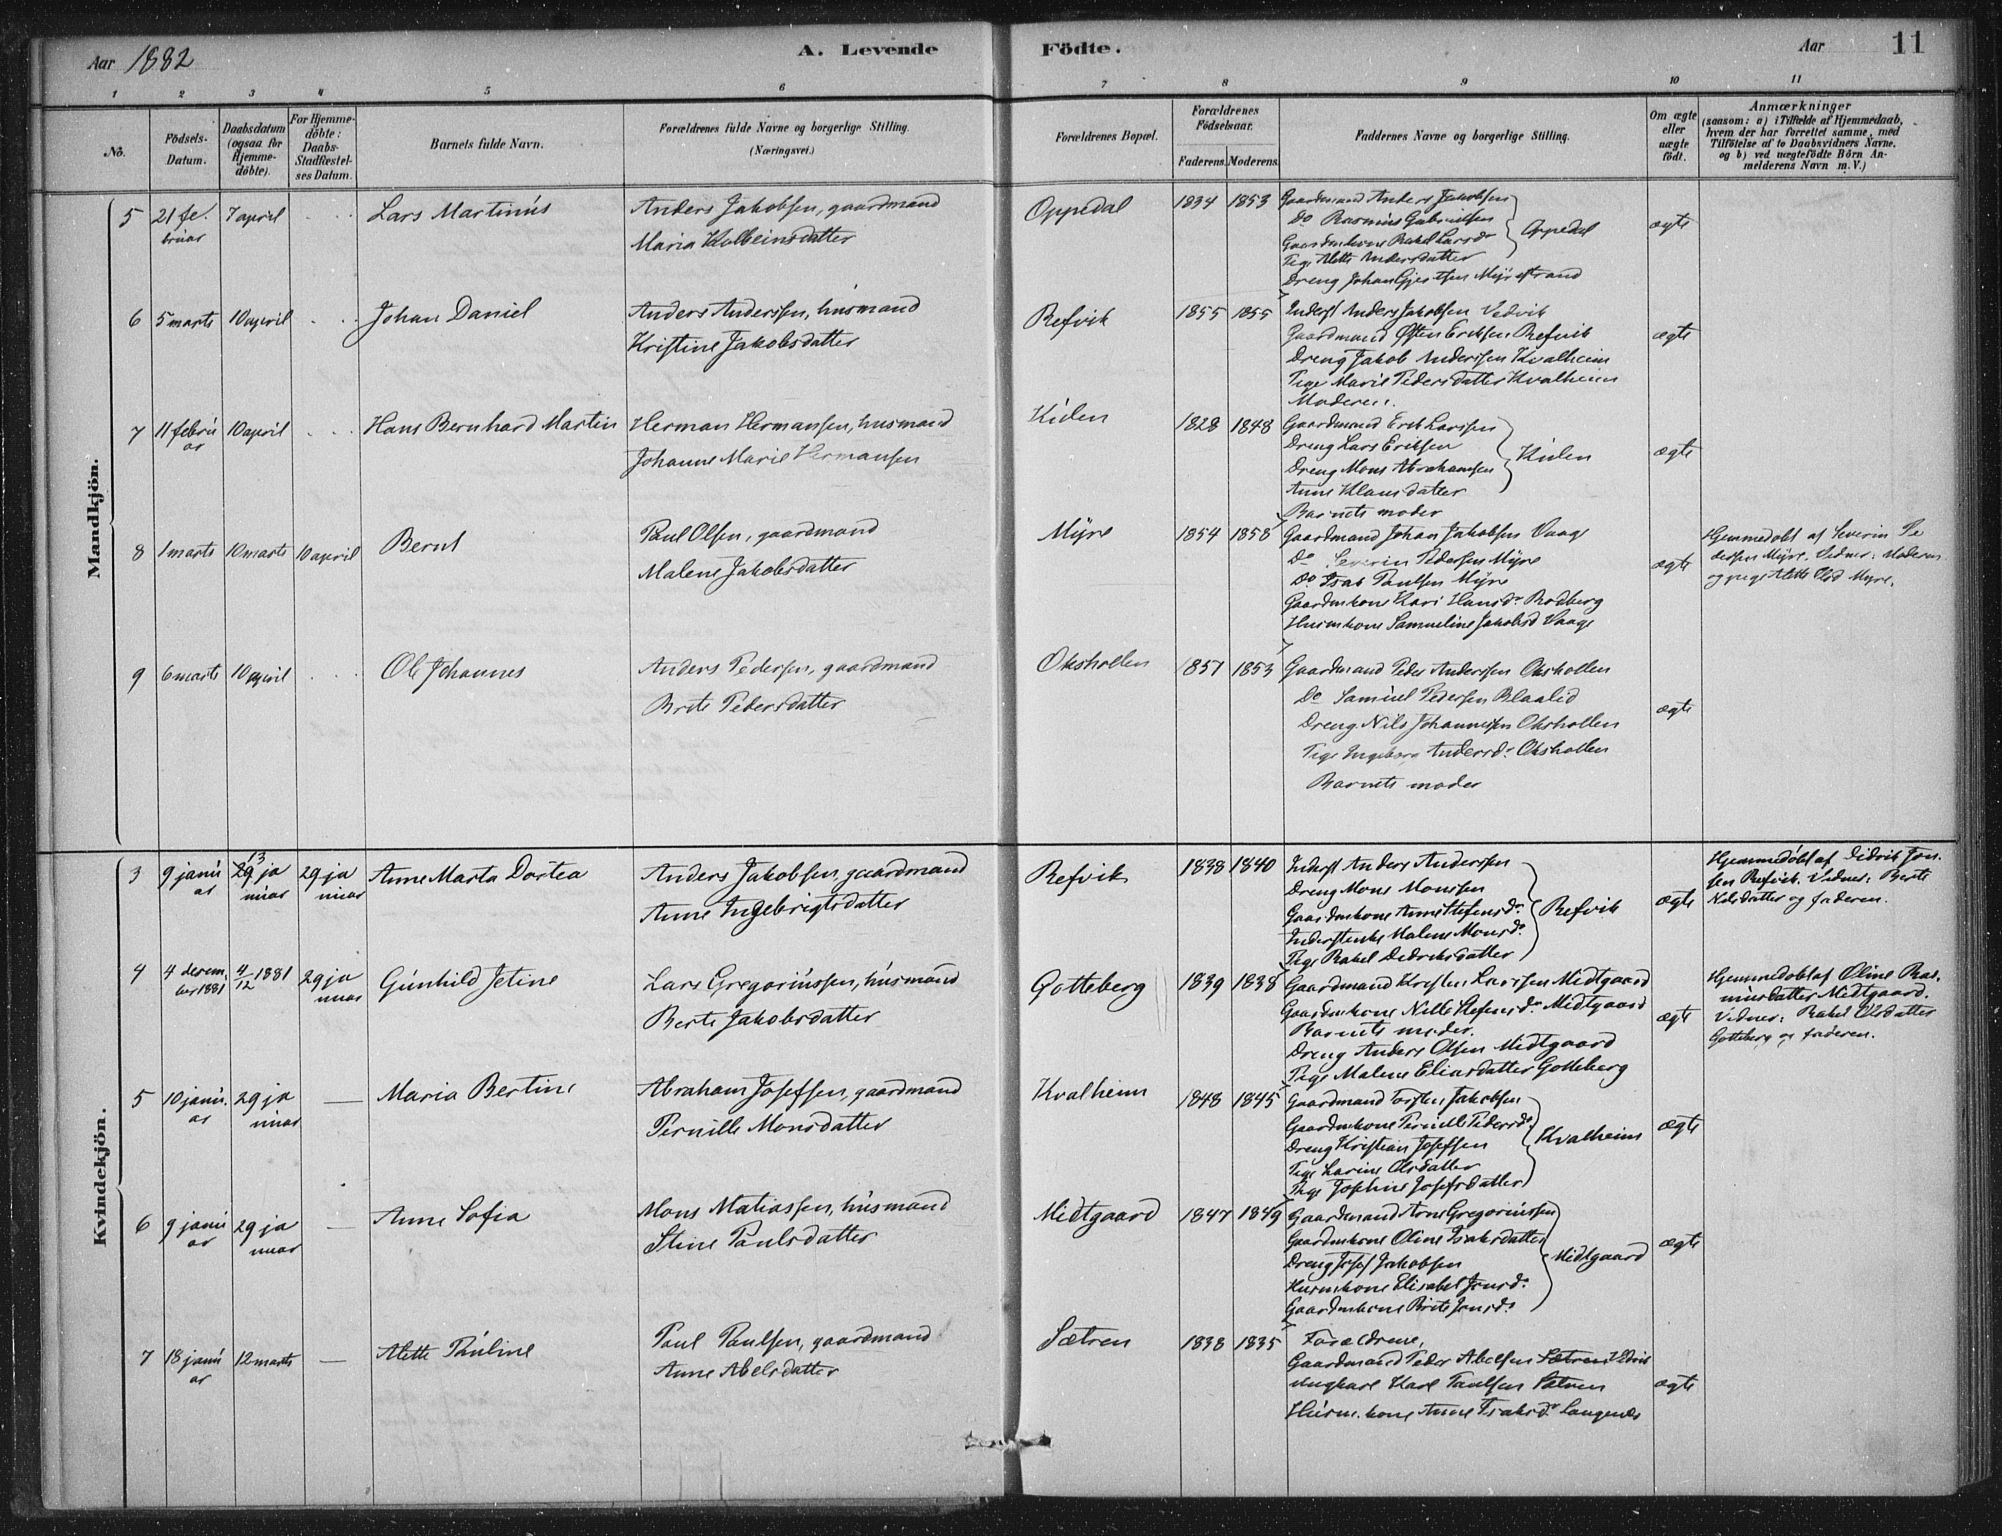 Aar 1882
A. Levende
Födte.
Aar
11
1 2 3 4 5 6 7 8 9 10 11
No.
Födsels-
Datum.
Daabsdatum
(ogsaa for
Hjemme-
döbte).
For Hjemme-
döbte:
Daabs-
Stadfæstel-
ses Datum.
Barnets fulde Navn.
Forældrenes fulde Navne og borgerlige Stilling.
(Næringsvei.)
Forældrenes Bopæl.
Forældrenes
Födselsaar.
Faderens. Moderens.
Faddernes Navne og borgerlige Stilling.
Om ægte
eller
uægte
födt.
Anmærkninger
(saasom: a) i Tilfælde af Hjemmedaab,
hvem der har forrettet samme, med
Tilföielse af to Daabsvidners Navne,
og b) ved uægtefödte Börn An-
melderens Navn m. V.)
Mandkjön.
5 21 fe.
bruar
7 april
Lars Martinus
Anders Jakobsen, gaardmand
Maria Kolbeinsdatter
Oppedal
1834 1853
Gaardmand Anders Jakobsen
Do Rasmus Gabrielsen
Gaardmkone Rakel Larsdr
Pige Alette Andersdatter
Oppedal
Dreng Johan Gjertsen Myrestrand
ægte
6 5 marts 10 april
Johan Daniel
Anders Anderssen, husmand
Kristine Jakobsdatter
Refvik
1855 1855
Inderst Anders Jakobsen Vedvik
Gaardmand Østen Eriksen Refvik
Dreng Jakob Anderssen Kvalheim
Pige Marie Pedersdatter Kvalheim
Moderen.
ægte
7 11 febru
ar
10 april
Hans Bernhard Martin
Herman Hermansen, husmand
Johanne Marie Hermansen
Kulen
1828 1848
Gaardmand Erik Larssen
Dreng Lars Eriksen
Dreng Mons Abrahamsen
Anne Klausdatter
Kulen
Barnets moder
ægte
8 1 marts 10 marts 10 april
Bernt
Paul Olsen, gaardmand
Malene Jakobsdatter
Myre
1854 1858
Gaardmand Johan Jakobsen Vaage
Do Severin Pedersen Myre
Do Isak Paulsen Myre
Gaardmkone Kari Hansdr Rodberg
Husmkone Samueline Jakobsd Vaage
ægte
Hjemmedøbt af Severin Pe
dersen Myre. Vidner: Moderen
og pige Alette Myre.
9 6 marts 10 april
Ole Johannes
Anders Pedersen, gaardmand
Brite Pedersdatter
Oksholen
1851 1853
Gaardmand Peder Anderssen Oksholen
Do Samuel Pedersen Blaalid
Dreng Nils Johannessen Oksholen
Pige Ingeborg Andersdr Oksholen
Barnets moder
ægte
Kvindekjön.
3 9 janu
ar
13
29 ja
nuar
29 ja
nuar
Anne Marta Dortea
Anders Jakobsen, gaardmand
Anne Ingebrigtsdatter
Refvik
1838 1840
Inderst Anders Anderssen
Dreng Mons Monssen
Gaardmkone Anne Stefensdr
Inderstenke Malene Monsdr
Pige Rakel Dedriksdatter
Refvik
ægte
Hjemmedøbt af Didrik Jon.
sen Refvik. Vidner: Berte
Nilsdatter og faderen.
4 4 decem.
ber 1881
4/12 1881
29 ja
nuar
Gunhild Jetine
Lars Gregoriussen, husmand
Berte Jakobsdatter
Gotteberg
1839 1838
Gaardmand Kresten Larssen Midtgaard
Gaardmkone Nille Stefensdr Midtgaard
Barnets moder.
Dreng Anders Olsen Midtgaard
Pige Malene Eliasdatter Gotteberg
ægte
Hjemmedøbt af Oline Ras.
musdatter Midtgaard.
Vidner: Rakel Olsdatter
Gotteberg og faderen.
5 10 janu.
ar
29 ja
nuar
Maria Bertine
Abraham Josefsen, gaardmand
Pernille Monsdatter
Kvalheim
1848 1845
Gaardmand Torsten Jakobsen
Gaardmkone Pernille Pedersdr
Dreng Kristian Josefsen
Pige Larine Olsdatter
Pige Josefine Josefsdatter
Kvalheim
ægte
6 9 janu
ar
29 ja
nuar
Anne Sofia
Mons Matiassen, husmand
Stine Paulsdatter
Midtgaard
1847 1849
Gaardmand Arne Gregoriussen
Gaardmkone Oline Isaksdatter
Dreng Josef Jakobsen
Husmkone Elisabet Jonsdr
Gaardmkone Brite Jonsdr
Midtgaard
ægte
7 18 janu
ar
12 marts
Alette Pauline
Paul Paulsen, gaardmand
Anne Abelsdatter
Sætren
1838 1835
Forældrene,
Gaardmand Peder Abelsen Sætren Vedvik
Ungkarl Karl Paulsen Sætren
Husm.kone Anne Isaksdr Langenes
ægte